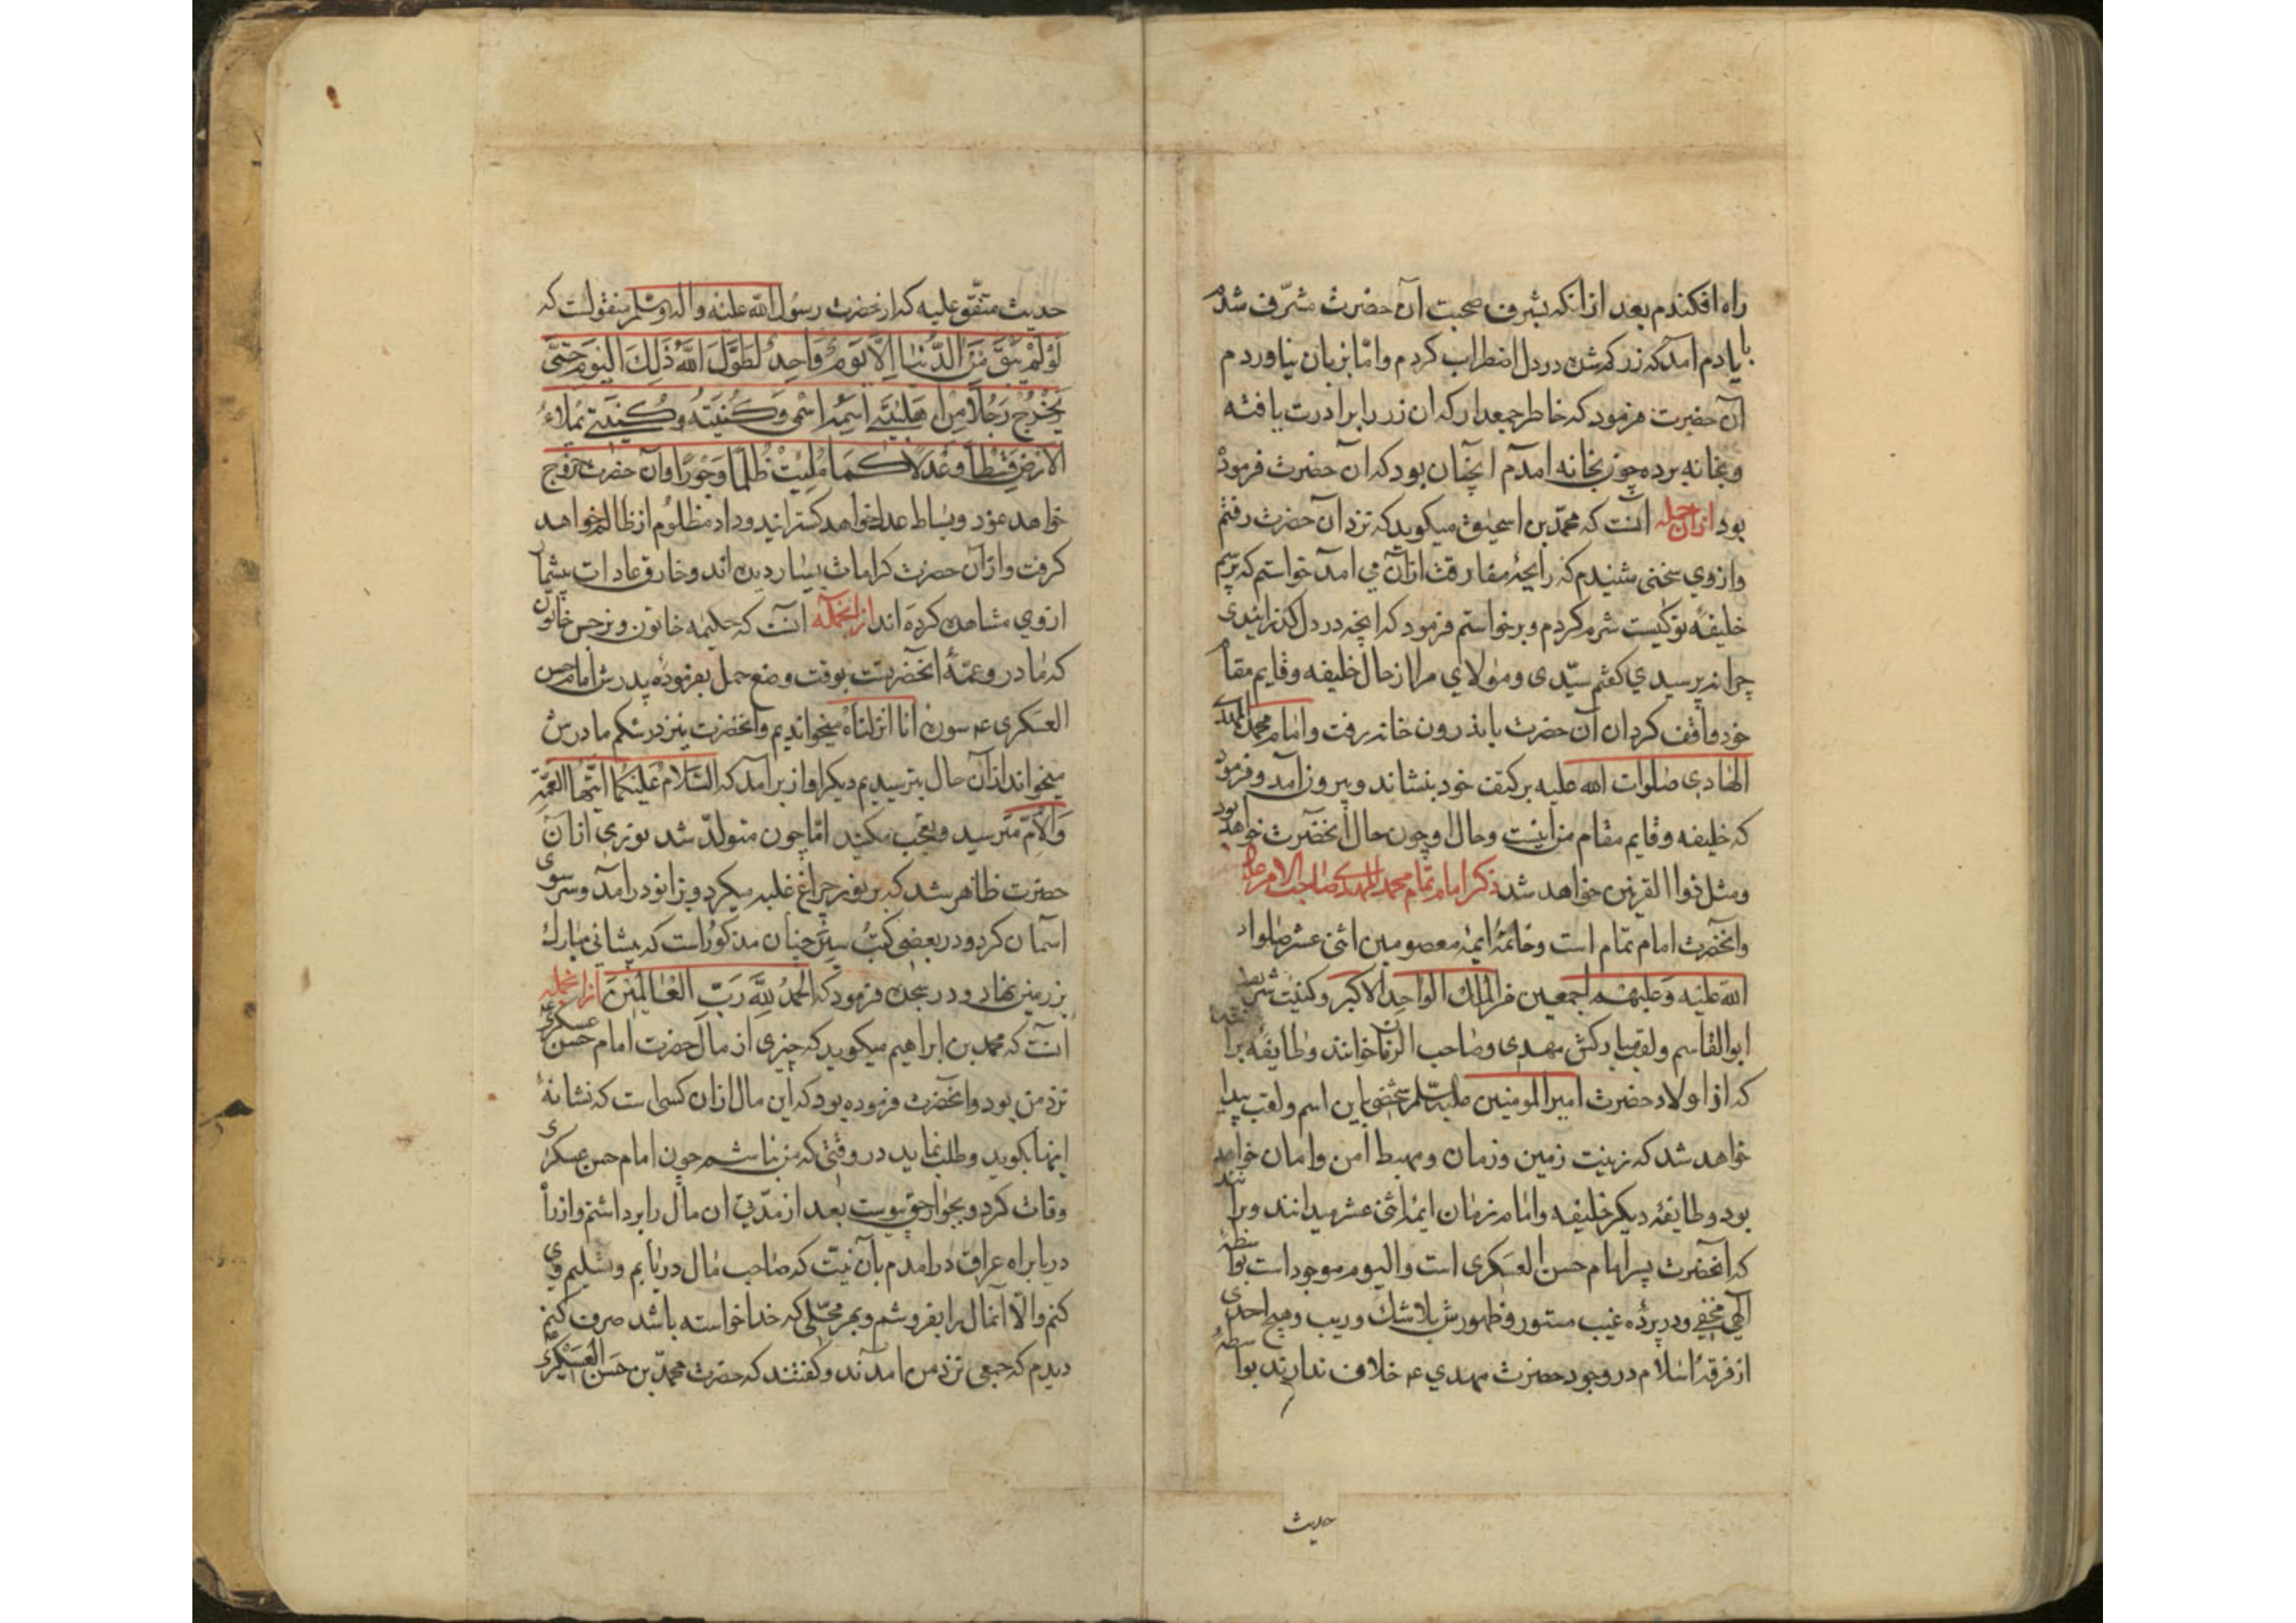 راه افکندم بعد از انکه بشرف صحبت آن حضرت مشرف شدم
بیادم آمد که زر کم شده در دل اضطراب کردم و اما بزبان نیاوردم
آن حضرت فرمود که خاطر جمع دار که ان زر را برادرت یافته
و بخانه برده چون بخانه آمدم انچنان بود که آن حضرت فرموده
بود ازان جمله آنست که محمد بن اسحیق میکوید که نزد آن حضرت رفتم
و از وی سخنی شنیدم که رایحهٔ مفارقت ازان می آمد خواستم که پرسم
خلیفهٔ تو کیست شرم کردم و برخواستم فرمود که انچه در دل کذرانیدی
چرا نپرسیدی کفتم سیّدی و مولای مرا از حال خلیفه و قایم مقام
خود واقف کردان آن حضرت باندرون خانه رفت و امام محمد المهدی
الهادی صلوات الله علیه بر کتف خود بنشاند و بیرون آمد و فرمود
که خلیفه و قایم مقام من اینست و حال او چون حال انحضرت خواهد بود
و مثل ذوا القرنین خواهد شد ذکر امام تمام محمد المهدی صاحب الامر
وانحضرت امام تمام است و خاتمهٔ ایمهٔ معصومین اثنی عشر صلوات
الله علیه و علیهم اجمعین من الملك الواحد الاکبر و کنیت شریفش
ابوالقاسم و لقب مبارکش مهدی و صاحب الزمان خوانند و طایفهٔ برانند
که از اولاد حضرت امیر المومنین علیه سلم شخصی باین اسم و لقب پیدا
خواهد شد که زینت زمین و زمان و مهبط امن و امان خواهد
بود و طایفهٔ دیکر خلیفه و امام زمان ایمهٔ اثنی عشر میدانند و برانند
که آنحضرت پسر امام حسن العسکری است و الیوم موجود است بواسطهٔ
الهی مخفی و در پردهٔ غیب مستور و ظهورش بلا شك و ریب و هیچ احدی
از فرقهٔ اسلام در وجود حضرت مهدی ع خلاف ندارند بواسطهٔ
حدیث
حدیث متّفق علیه که از حضرت رسول الله علیه و اله و سلم منقولست که
لَوْ لَمْ یَبْقَ مِنَ الدُّنیا اِلّا یَومٌ وَاحِدٌ لَطَوَّلَ اللهُ ذَلِكَ الیَومَ حَتّی
یَخْرُجَ رَجُلًا مِنْ اَهلبَیتی اسمُهُ اسْمی وَ کُنیَتُهُ و کُنیَتی یملاءُ
الارْضَ قِسْطاً وَ عَدْلًا کَمَا مُلِئَتْ ظُلْمًا وَ جَوْرًا و آن حضرت خروج
خواهد نمود و بساط عدل خواهد کسترانید و داد مظلوم از ظالم خواهد
کرفت و از آن حضرت کرامات بسیار دیده اند و خارق عادات بیشمار
از وی مشاهده کرده اند ازانجمله آنست که حکیمه خاتون و نرجس خاتون
که مادر و عمّهٔ انحضرتست بوقت وضع حمل بفرمودهٔ پدرش امام حسن
العسکری ع سورهٔ انا انزلناه میخواندیم و آنحضرت نیز در شکم مادرش
میخواند ازان حال بترسیدیم دیکر اواز برآمد که السَّلامُ عَلَیْکُمَا اَیَّتُهَا العَمَّة
وَالاُمّ مترسید و تعجب مکنید اما چون متولّد شد نوری ازان
حضرت ظاهر شد که بر نور چراغ غلبه میکرد و بزانو درآمد و سر سوی
آسمان کرد و در بعضی کتُب سِیَر چنان مذکور است که پیشانی مبارك
بر زمین نهاد و در سجده فرمود که الحَمدُ لِلّهِ رَبِّ العَالَمِینَ ازانجمله
آنست که محمد بن ابراهیم میکوید که چیزی از مال حضرت امام حسن عسکری
نزد من بود و آنحضرت فرموده بود که این مال ازان کسی است که نشانهٔ
اینها بکوید و طلب نماید در وقتی که من نباشم چون امام حسن عسکری
وفات کرد و بجوار حق پیوست بعد از مدّتی ان مال را برداشتم و از راه
دریا براه عراق درامدم بآن نیّت که صاحب مال دریابم و تسلیم وی
کنم و الّا آنمال را بفروشم و بهر محلّی که خدا خواسته باشد صرف کنم
دیدم که جمعی نزد من امدند و کفتند که حضرت محمّد بن حَسَن العَسکَری